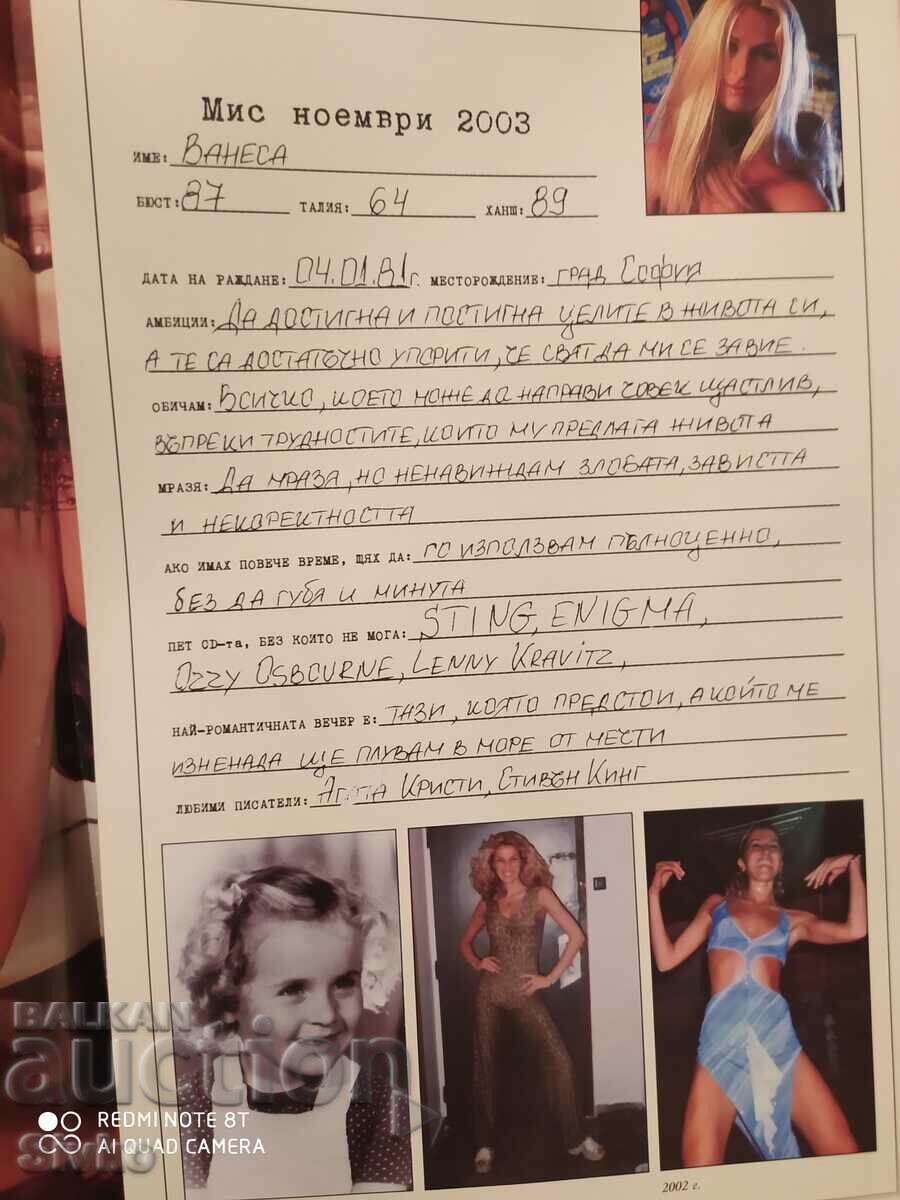 Мис ноември 2003
ИМЕ: ВАНЕСА
БЮСТ: 87 ТАЛИЯ: 64 ХАНШ: 89
ДАТА НА РАЖДАНЕ: 04.01.81г. МЕСТОРОЖДЕНИЕ: ГРАД СОФИЯ
АМБИЦИИ: ДА ДОСТИГНА И ПОСТИГНА ЦЕЛИТЕ В ЖИВОТА СИ,
А ТЕ СА ДОСТАТЪЧНО УПОРИТИ, ЧЕ СВЯТ ДА МИ СЕ ЗАВИЕ.
ОБИЧАМ: ВСИЧКО, КОЕТО МОЖЕ ДА НАПРАВИ ЧОВЕК ЩАСТЛИВ,
ВЪПРЕКИ ТРУДНОСТИТЕ, КОИТО МУ ПРЕДЛАГА ЖИВОТА
МРАЗЯ: ДА МРАЗЯ, НО НЕНАВИЖДАМ ЗЛОБАТА, ЗАВИСТТА
И НЕКОРЕКТНОСТТА
АКО ИМАХ ПОВЕЧЕ ВРЕМЕ, ЩЯХ ДА: ГО ИЗПОЛЗВАМ ПЪЛНОЦЕННО,
БЕЗ ДА ГУБЯ И МИНУТА
ПЕТ CD-та, БЕЗ КОИТО НЕ МОГА: STING, ENIGMA,
OZZY OSBOURNE, LENNY KRAVITZ,
НАЙ-РОМАНТИЧНАТА ВЕЧЕР Е: ТАЗИ, КОЯТО ПРЕДСТОИ, А КОЙТО МЕ
ИЗНЕНАДА ЩЕ ПЛУВАМ В МОРЕ ОТ МЕЧТИ
ЛЮБИМИ ПИСАТЕЛИ: АГАТА КРИСТИ, СТИВЪН КИНГ
2002 г.
BALKAN
auction
REDMI NOTE 8T
AI QUAD CAMERA